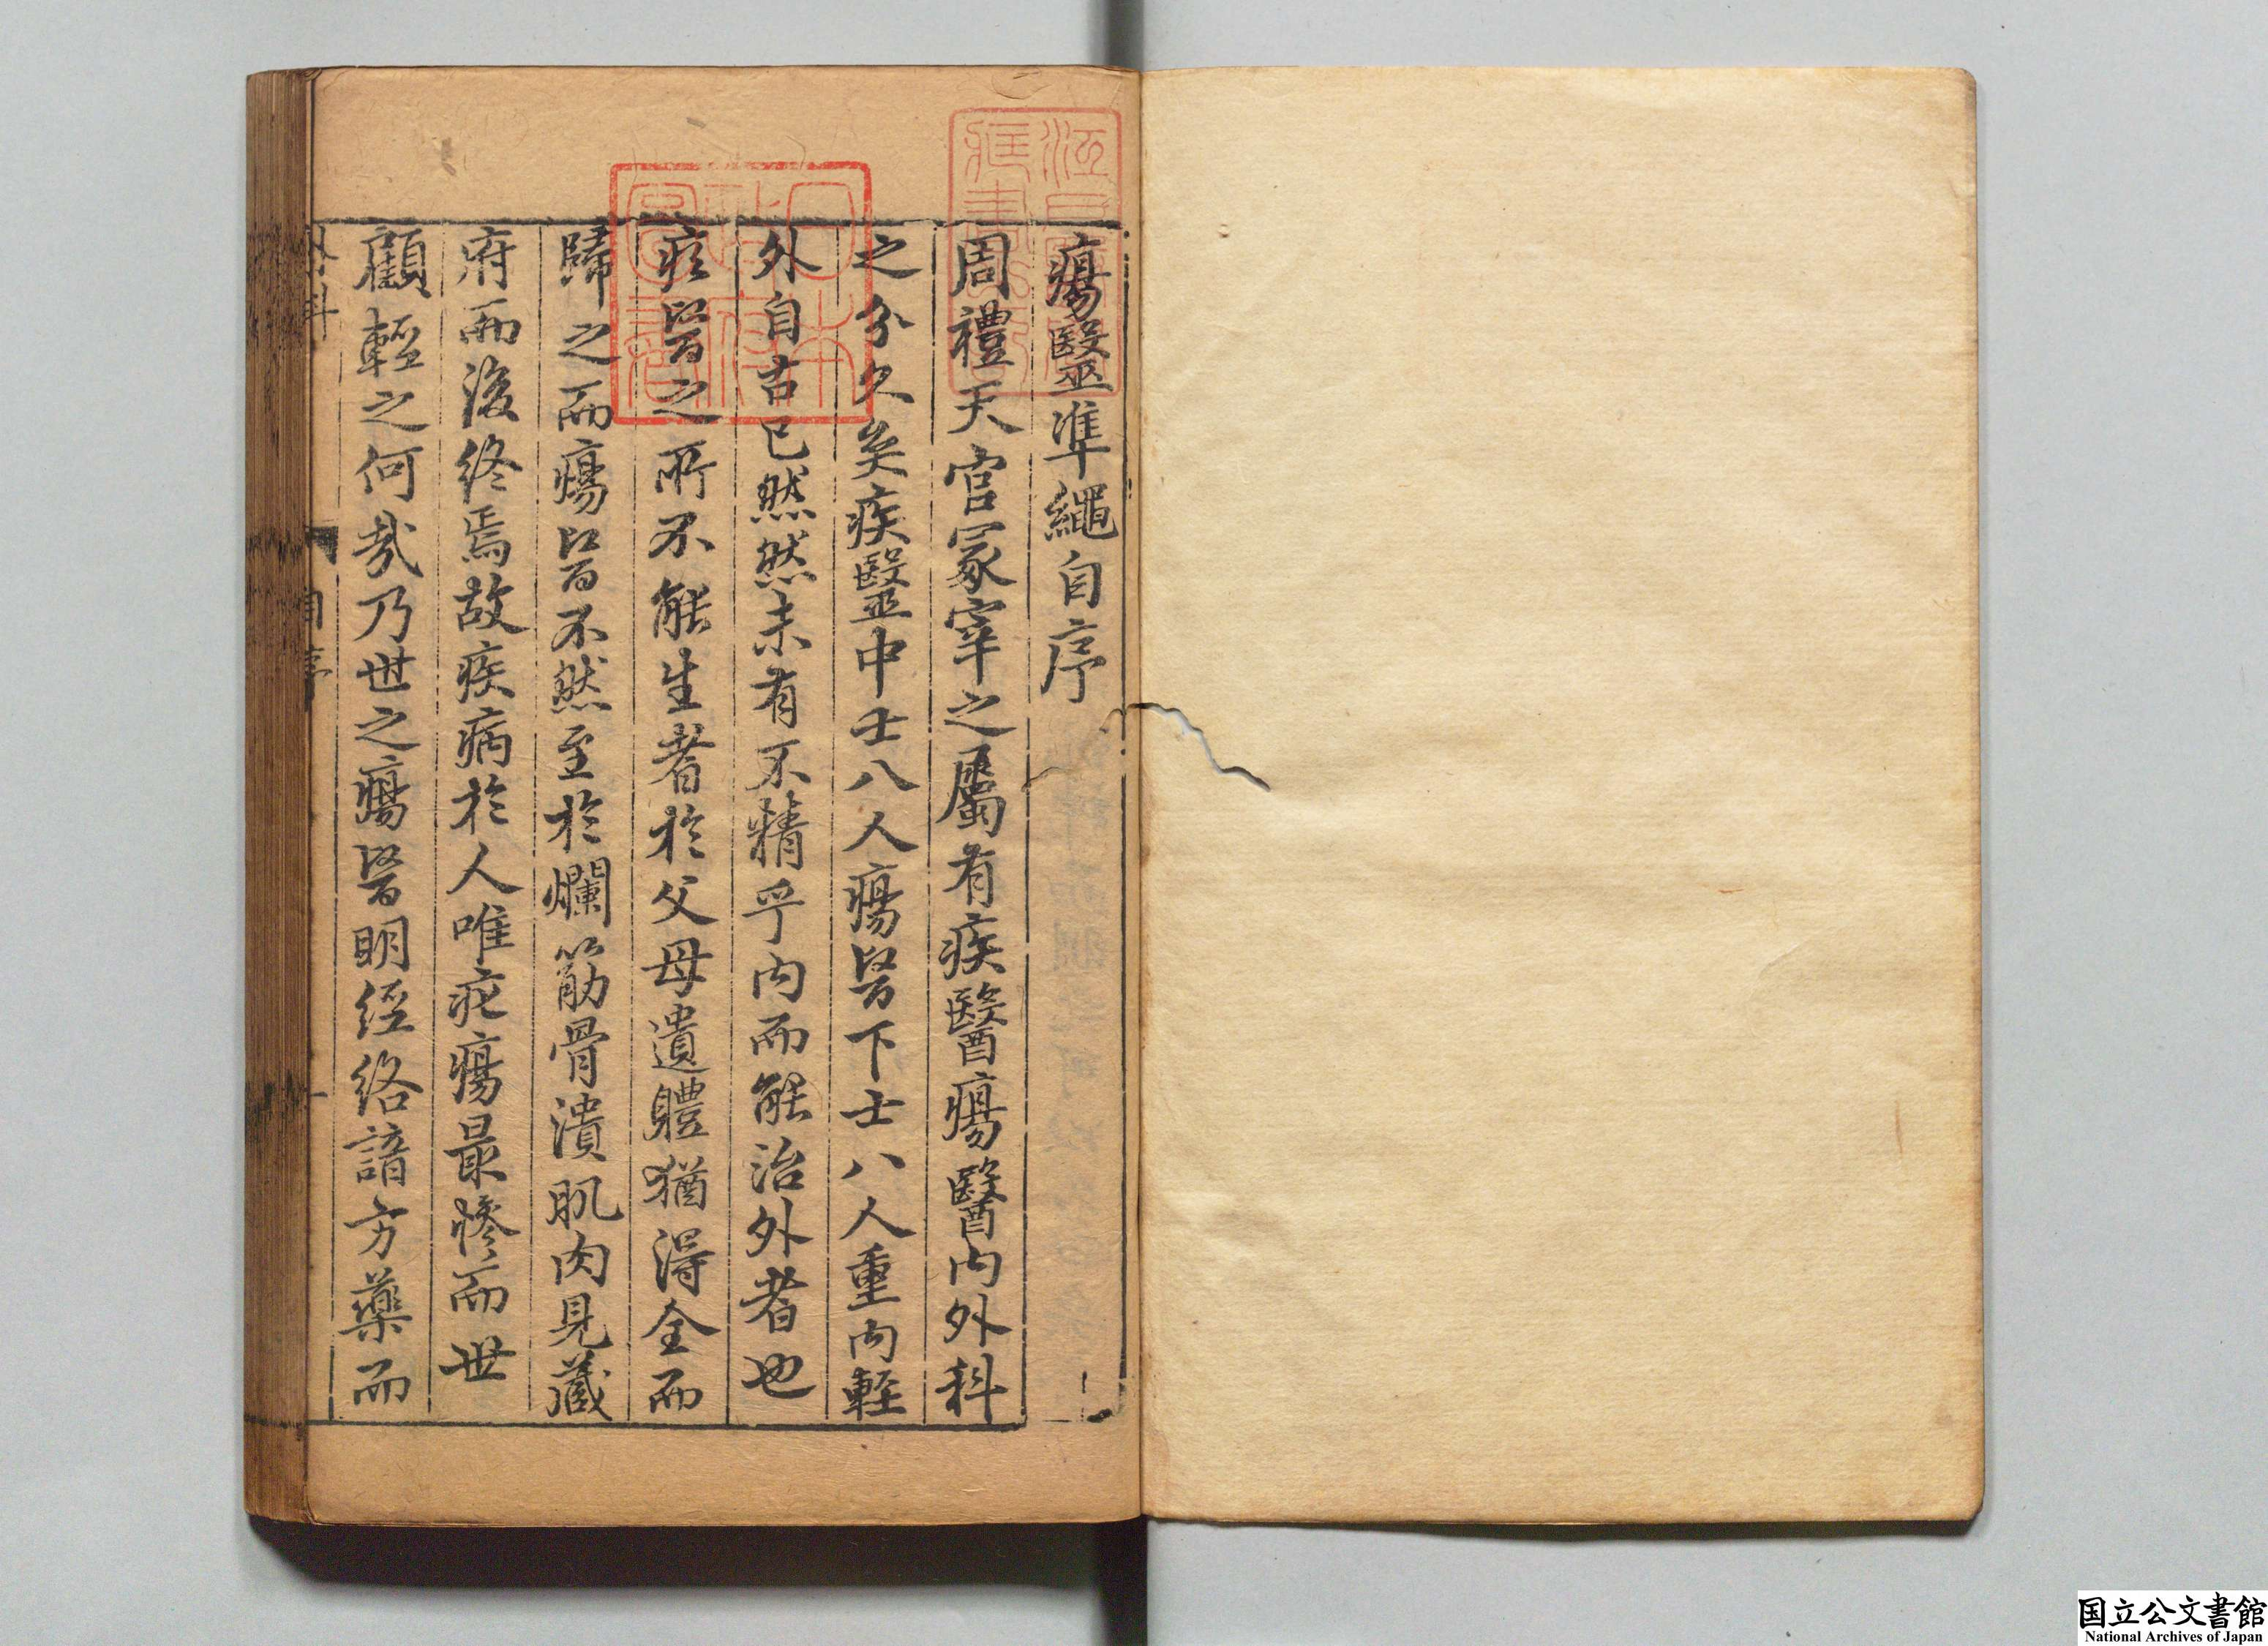 瘍毉準繩自序
周禮天官冢宰之屬有疾醫瘍醫内外科
之分久矣疾毉中士八人瘍醫下士八人重内輕
外自古已然然未有不精乎内而能治外者也
疾醫之所不能生者於父母遺體猶得全而
歸之而瘍醫不然至於爛筋骨潰肌肉見藏
府而後終焉故疾病於人唯疕瘍最慘而世
顧輕之何哉乃世之瘍醫明經絡諳方藥而
外科
自序
一
日本
政府
圖書
国立公文書館
National Archives of Japan